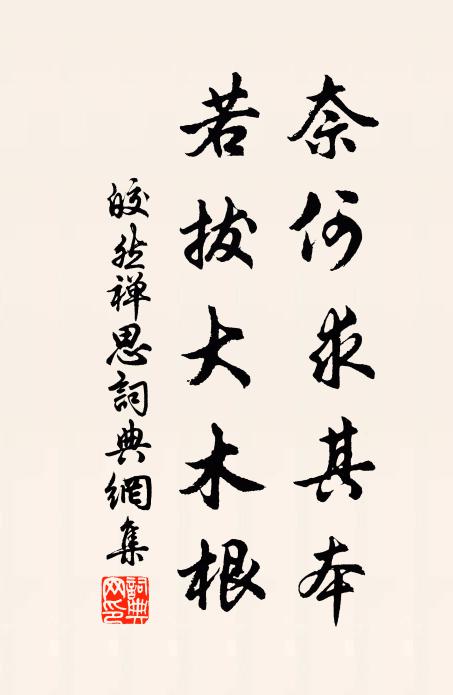 奈何求其本
若拔大木根
皎然禅思詞典網集
詞典网印